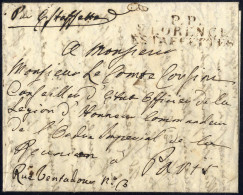 Par Estaffette
P.P.
FLORENCE
A Monsieur
Monsieur Le Comte
Conseiller d'Etat Officier de la
Légion d'Honneur Commandeur
de l'Ordre Imperial de la
Reunion à
PARIS
Rue Ventadour N.